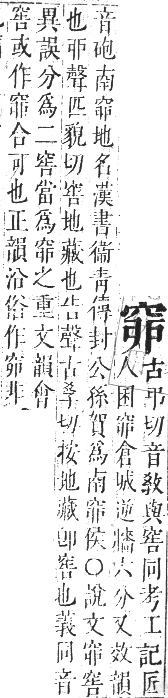 窌
古弔切音敎與窖同考工記匠
人囷窌倉城逆牆六分又效韻
音砲南窌地名漢書衞靑傳封公孫賀爲南窌侯○說文窌窖
也丣聲匹貌切窖地藏也告聲古孝切按地藏卽窖也義同音
異誤分爲二窖當爲窌之重文韻會
窖或作窌合可也正韻沿俗作窌非